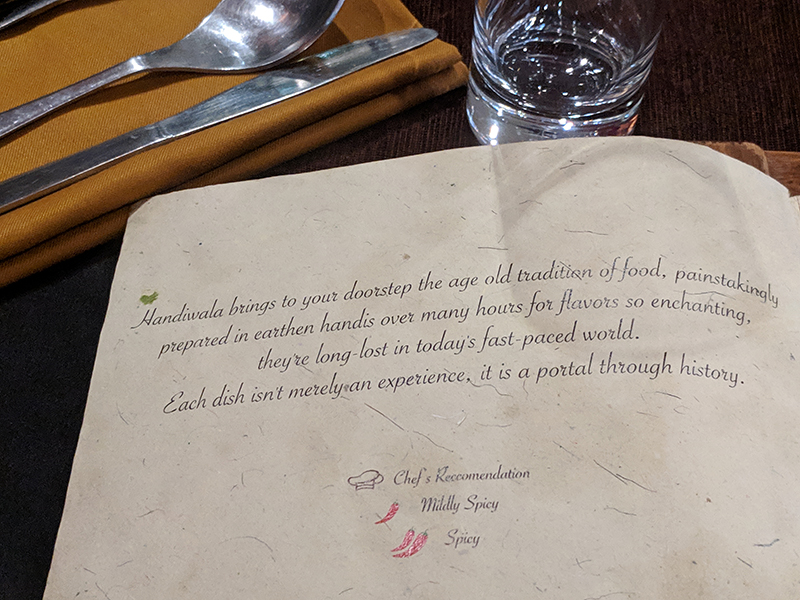 Handiwala brings to your doorstep the age old tradition of food, painstakingly
prepared in earthen handis over many hours for flavors so enchanting,
they're long-lost in today's fast-paced world.
Each dish isn't merely an experience, it is a portal through history.
Chef's Reccomendation
Mildly Spicy
Spicy